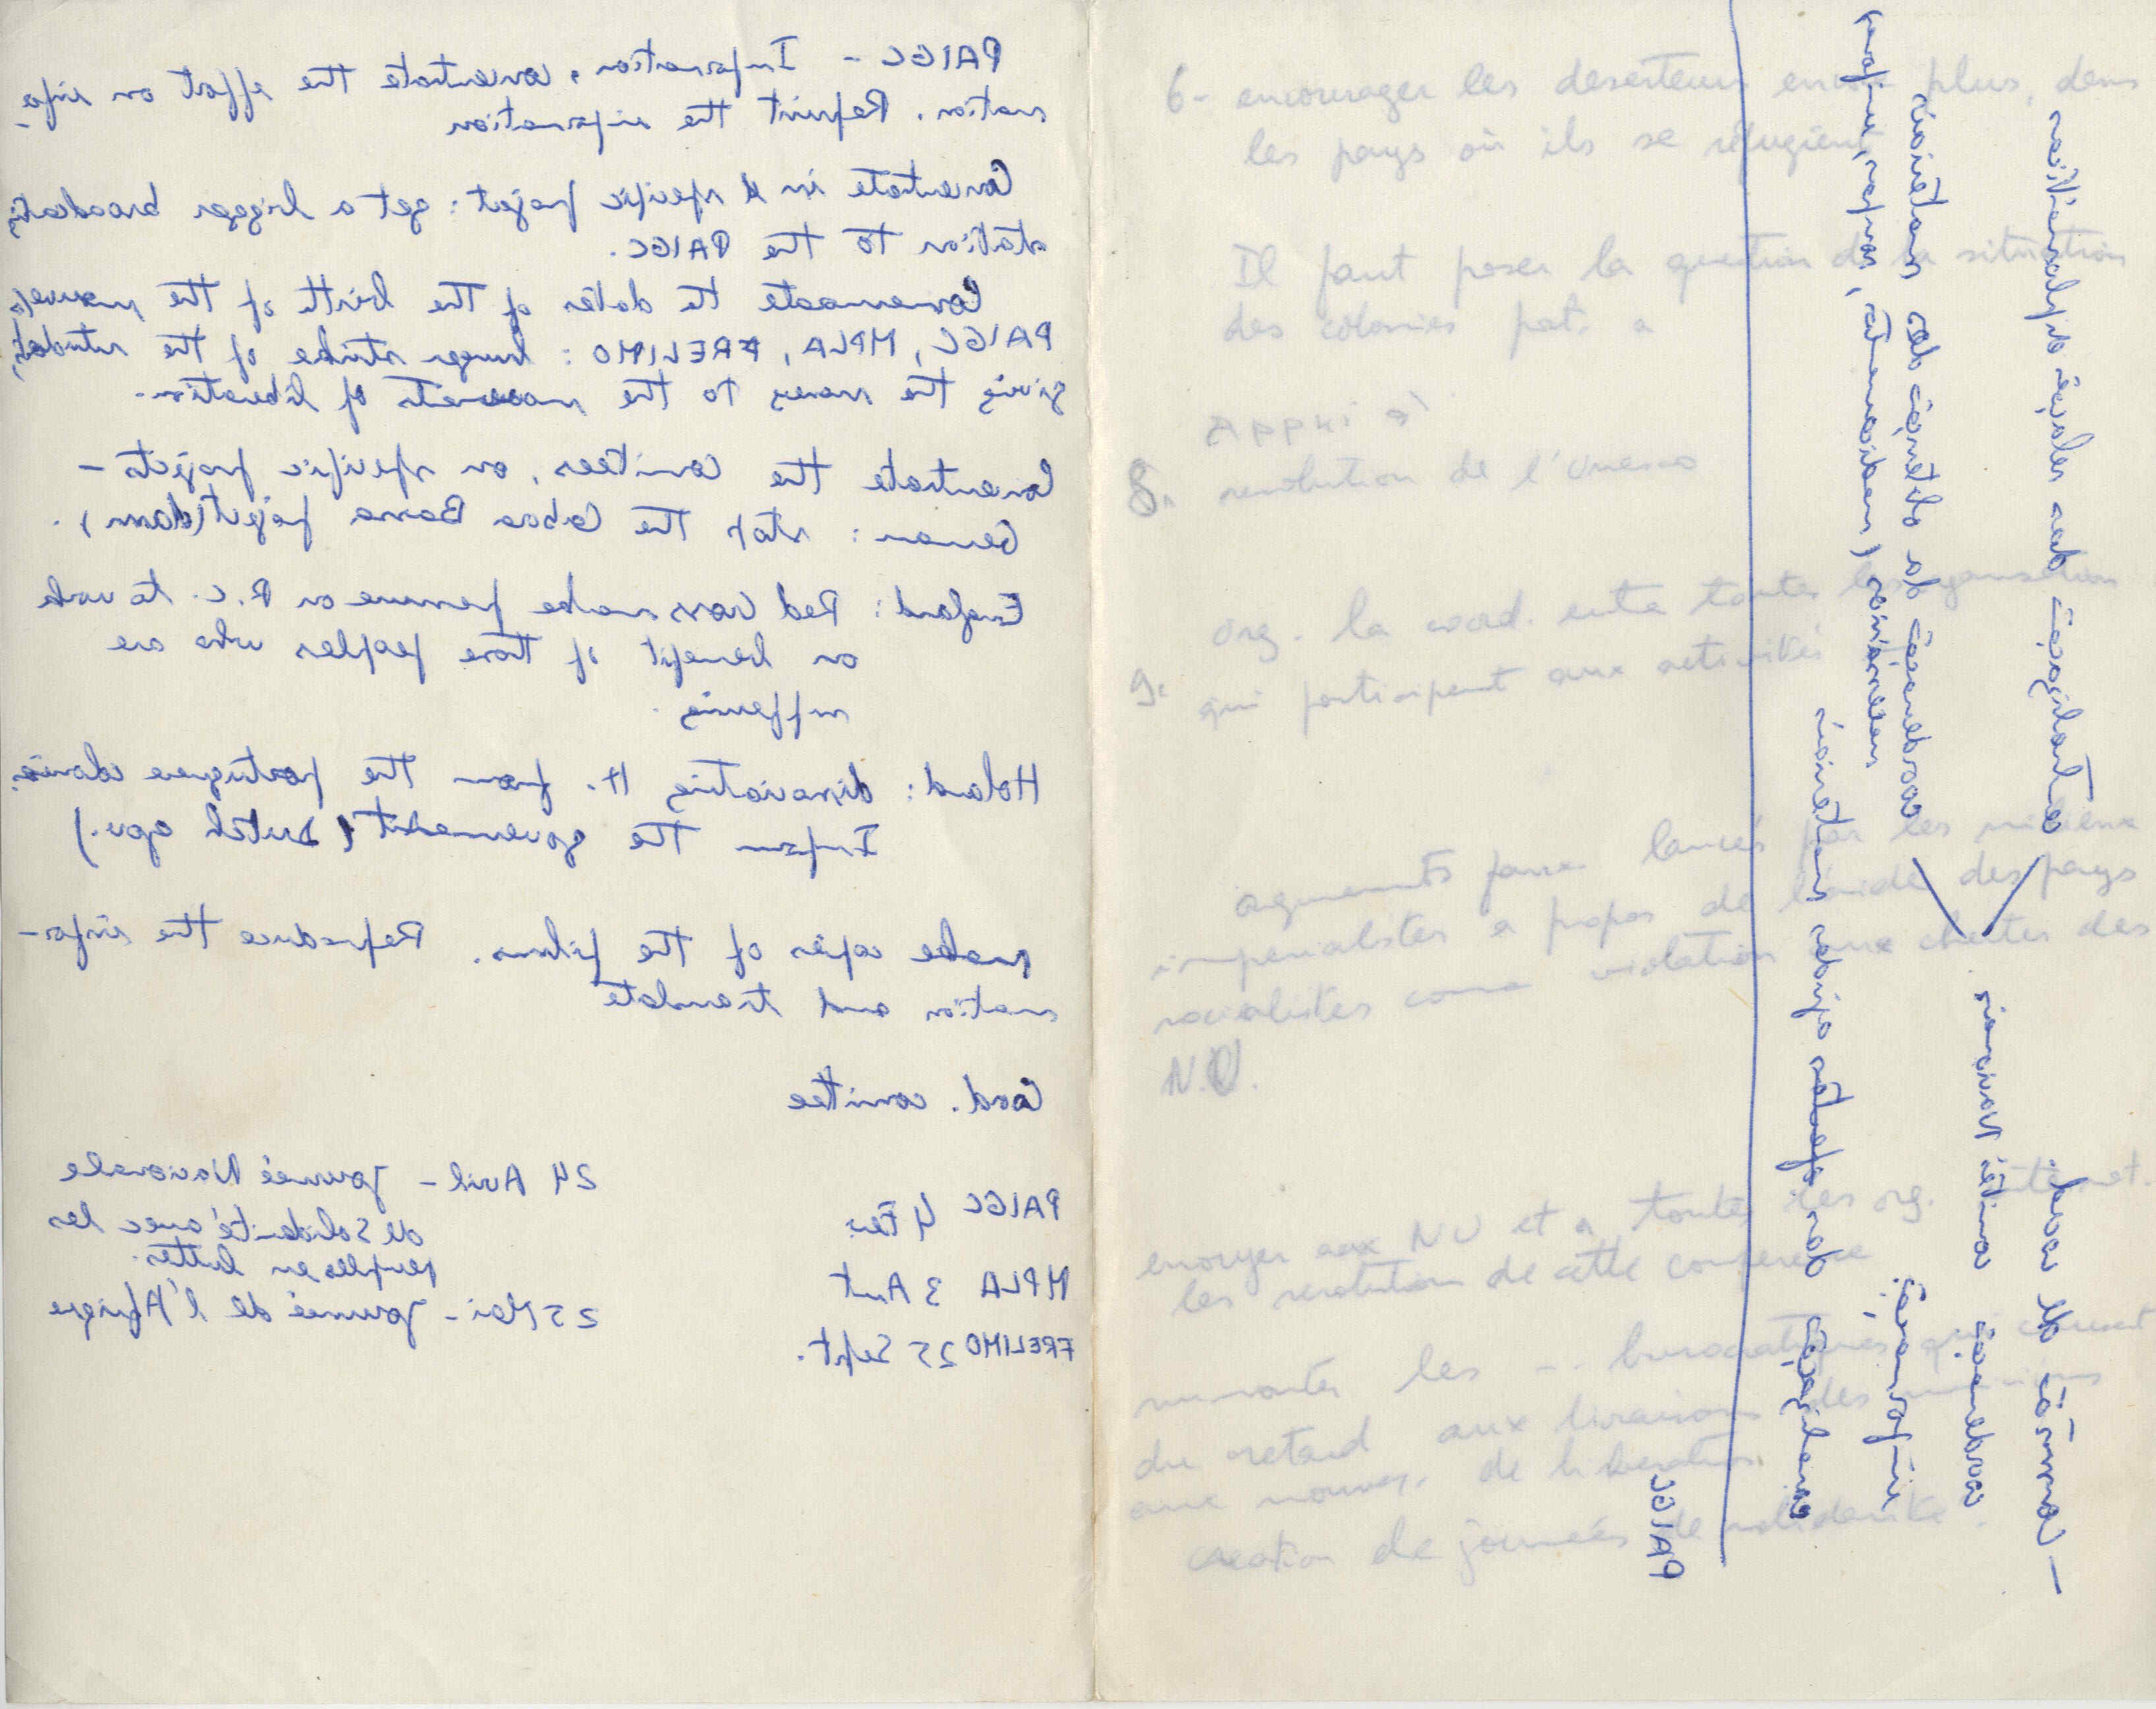 PAIGC - Information, concentrate the effort on info-
mation. Reprint the information
Concentrate in a specific projet: get a bigger broadcasting
station to the PAIGC.
Comemorate the dates of the birth of the
PAIGC, MPLA, FRELIMO: hunger strike of the students,
giving the money to the movements of liberation.
Concentrate the comitees, on specific projects -
German: stop the Cabora Bassa projet (dam).
England: Red Cross make pressure on R.C. to work
on benefit of those peoples who are
suffering.
Holand: dissociating H. from the portuguese colonies.
Inform the government (Dutch gov.)
make copies of the films. Reproduce the infor-
mation and translate
Cood. comittee
PAIGC 4 Fev.
MPLA 3 Aut
FRELIMO 25 Sept.
24 Avril - Journée Nacionale
de Solidarité avec les
peuples en lutte.
25 Mai - Journée de l'Afrique
6- encourager les deserteurs encore plus, dans
les pays où ils se réfugient
Il faut poser la question de la situation
des colonies port. a
Appui à
8. resolution de l'Unesco
org. la coord. entre toutes les organisation
9. qui participent aux activités
arguments faux lancés par les milieux
imperialistes a propos de l'aide des pays
socialistes come violation aux chartes des
N.U.
envoyer aux NU et a toutes les org. internat.
les resolution de cette conference
les -- burocratiques qui causent
du retard aux livraisons des
aux mouv. de liberation
creation de journées de solidarité.
PAIGC
canalização das ofertas ajudas materiais
informação
coordenação comités Nacionais
- Comité de coord.
necessários (medicamentos, roupas,
coordenação da obtenção dos materiais
centralização das relações diplomáticas